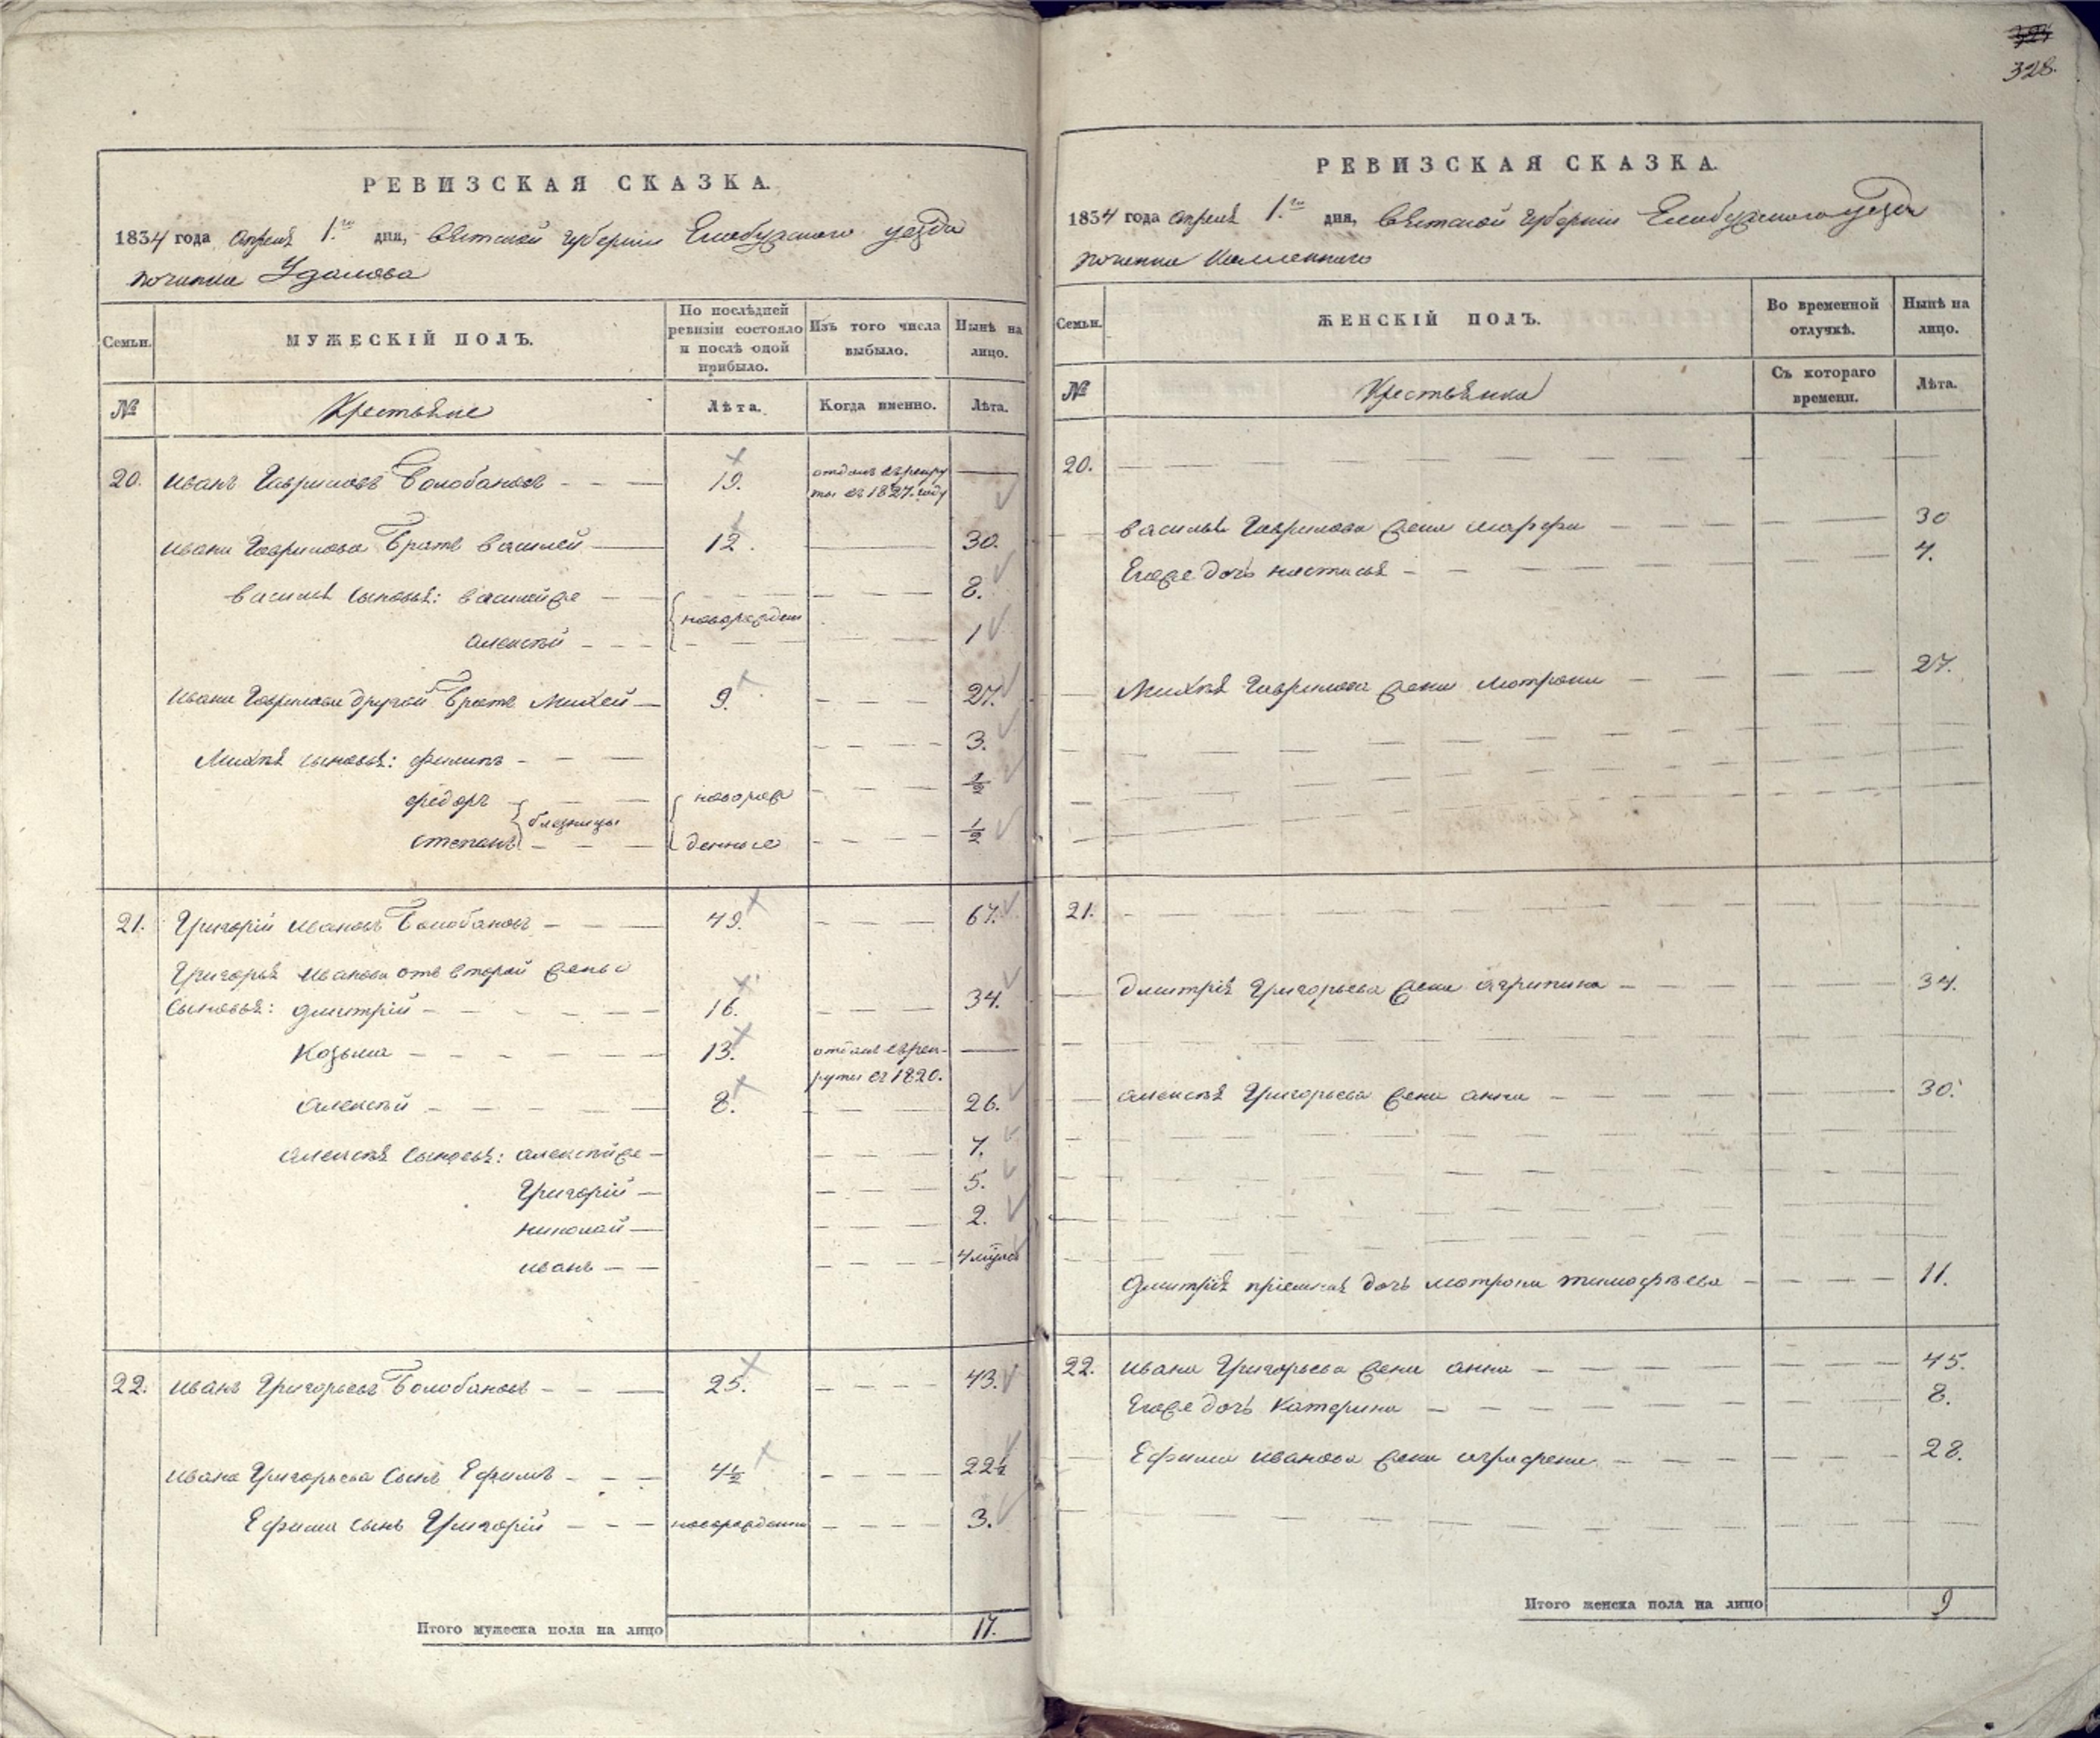 328.
РЕВИЗСКАЯ СКАЗКА.
1834 года апреля 1го дня, Вятской губернии Елабужского уезда
починка Удалова
Семьи.
МУЖЕСКІЙ ПОЛЪ.
По послѣдней ревизіи состояло и послѣ оной прибыло.
Изъ того числа выбыло.
Нынѣ на лицо.
№
Крестьяне
Лѣта.
Когда именно.
Лѣта.
20. Иванъ Гавриловъ Болобановъ 19. отданъ в рекру
ты въ 1827. году
Ивана Гаврилова Братъ Василей 12. 30.
Василья сыновья: Василей же 8.
новорожден
Алексѣй 1
Ивана Гаврилова другой Братъ Михей 9. 27.
Михѣя сыновья: Филипъ 3.
Федоръ новорож ½
близницы
Степанъ денные ½
21. Григорій Ивановъ Болобановъ 49. 67.
Григорья Иванова отъ второй жены
сыновья: Дмитрій 16. 34.
Козьма 13. отданъ в рек-
руты въ 1820.
Алексѣй 8. 26.
Алексѣя сыновья: Алексѣй же 7.
Григорій 5.
Николай 2.
Иванъ
22. Иванъ Григорьевъ Болобановъ 25. 43.
Ивана Григорьева сынъ Ефимъ 4½ 22½
Ефима сынъ Григорій новорожденны 3.
Итого мужеска пола на лицо 17.
РЕВИЗСКАЯ СКАЗКА.
1834 года апреля 1го дня, Вятской губернии Елабужского уезда
починка
Семьи.
ЖЕНСКІЙ ПОЛЪ.
Во временной отлучкѣ.
Нынѣ на лицо.
№
Крестьянка
Съ котораго времени.
Лѣта.
20.
Василья Гаврилова жена Марфа 30
Его же дочь Настасья 4.
Михѣя Гаврилова жена Мотрона 27.
21.
Дмитрія Григорьева жена Агрипина 34.
Алексѣя Григорьева жена Анна 30.
Дмитрія пріемная дочь Мотрона Тимофѣева 11.
22. Ивана Григорьева жена Анна 45.
Его же дочь Катерина 8.
Ефима Иванова жена Аграфена 28.
Итого женска пола на лицо 9